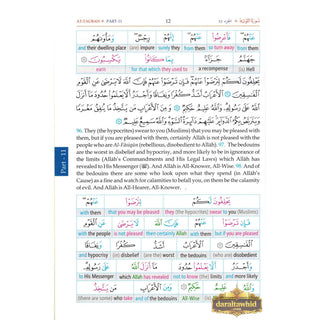 AT-TAUBAH 9. PART-11 12 الجزء ١١ سورة التوبة ٩
عَنْهُمْ فَأَعْرِضُوا عَنْهُمْ إِنَّهُمْ رِجْسٌ وَمَأْوَاهُمْ
and their dwelling place (are) impure surely they from them so turn away from them
بِمَا كَانُوا
earn for that they used to a recompense (is) Hell
يَحْلِفُونَ لَكُمْ لِتَرْضَوْا عَنْهُمْ فَإِن تَرْضَوْا عَنْهُمْ فَإِنَّ اللَّهَ لَا يَرْضَىٰ عَنِ الْقَوْمِ
الْفَاسِقِينَ الْأَعْرَابُ أَشَدُّ كُفْرًا وَنِفَاقًا وَأَجْدَرُ أَلَّا يَعْلَمُوا حُدُودَ مَا أَنزَلَ
اللَّهُ عَلَىٰ رَسُولِهِ وَاللَّهُ عَلِيمٌ حَكِيمٌ وَمِنَ الْأَعْرَابِ مَن يَتَّخِذُ مَا يُنفِقُ مَغْرَمًا
96. They (the hypocrites) swear to you (Muslims) that you may be pleased with
them, but if you are pleased with them, certainly Allah is not pleased with the
people who are Al-Fâsiqûn (rebellious, disobedient to Allah). 97. The bedouins
are the worst in disbelief and hypocrisy, and more likely to be in ignorance of
the limits (Allah's Commandments and His Legal Laws) which Allah has
revealed to His Messenger (ﷺ). And Allah is All-Knower, All-Wise. 98. And of
the bedouins there are some who look upon what they spend (in Allah's
Cause) as a fine and watch for calamities to befall you, on them be the calamity
of evil. And Allah is All-Hearer, All-Knower.
Part - 11
يَحْلِفُونَ لَكُمْ لِتَرْضَوْا عَنْهُمْ
with them that you may be pleased they (the hypocrites) swear to you (Muslims)
with the people is not pleased then certainly Allah with them but if you are pleased
الْفَاسِقِينَ الْأَعْرَابُ أَشَدُّ كُفْرًا وَنِفَاقًا
and hypocrisy (in) disbelief (are) the worst the bedouins (who are) disobedient
وَأَجْدَرُ أَلَّا يَعْلَمُوا حُدُودَ مَا أَنزَلَ اللَّهُ عَلَىٰ رَسُولِهِ
to His Messenger which Allah has revealed not to know (the) limits and more likely
وَاللَّهُ عَلِيمٌ حَكِيمٌ وَمِنَ الْأَعْرَابِ مَن يَتَّخِذُ
(there are some) who take and of the bedouins All-Wise
daraltawhid